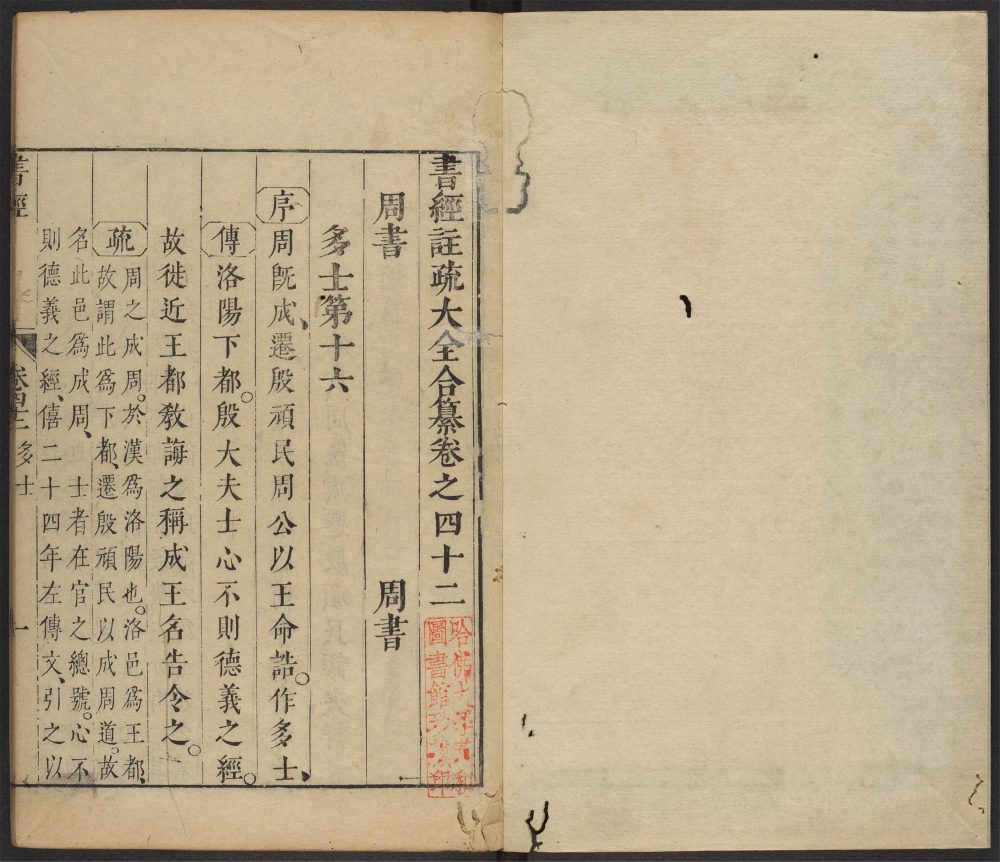 書經註疏大全合纂卷之四十二
周書 周書
多士第十六
序 周既成、遷殷頑民周公以王命誥。作多士、
傳 洛陽下都。殷大夫士心不則德義之經。
故徙近王都教誨之稱成王名告令之。
疏 周之成周。於漢爲洛陽也。洛邑爲王都、
故謂此爲下都、遷殷頑民以成周道。故
名此邑爲成周、 士者在官之總號。心不
則德義之經、僖二十四年左傳文、引之以
書經 卷四十二 多士 一
哈佛大學漢和
圖書館珍藏印